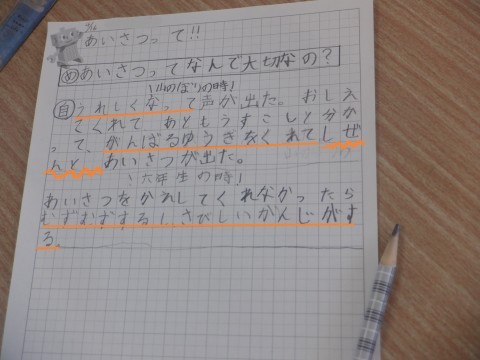 あいさつって!!
めあいさつってなんで大切なの?
山のぼりの時!
自うれしくなって声が出た。おしえ
てくれてあともうすこしと分か
って、がんばるゆうきをくれてしぜ
んとあいさつが出た。
!六年生の時!
あいさつをかえしてくれなかったら
むずむずするし、さびしいかんじがす
る。